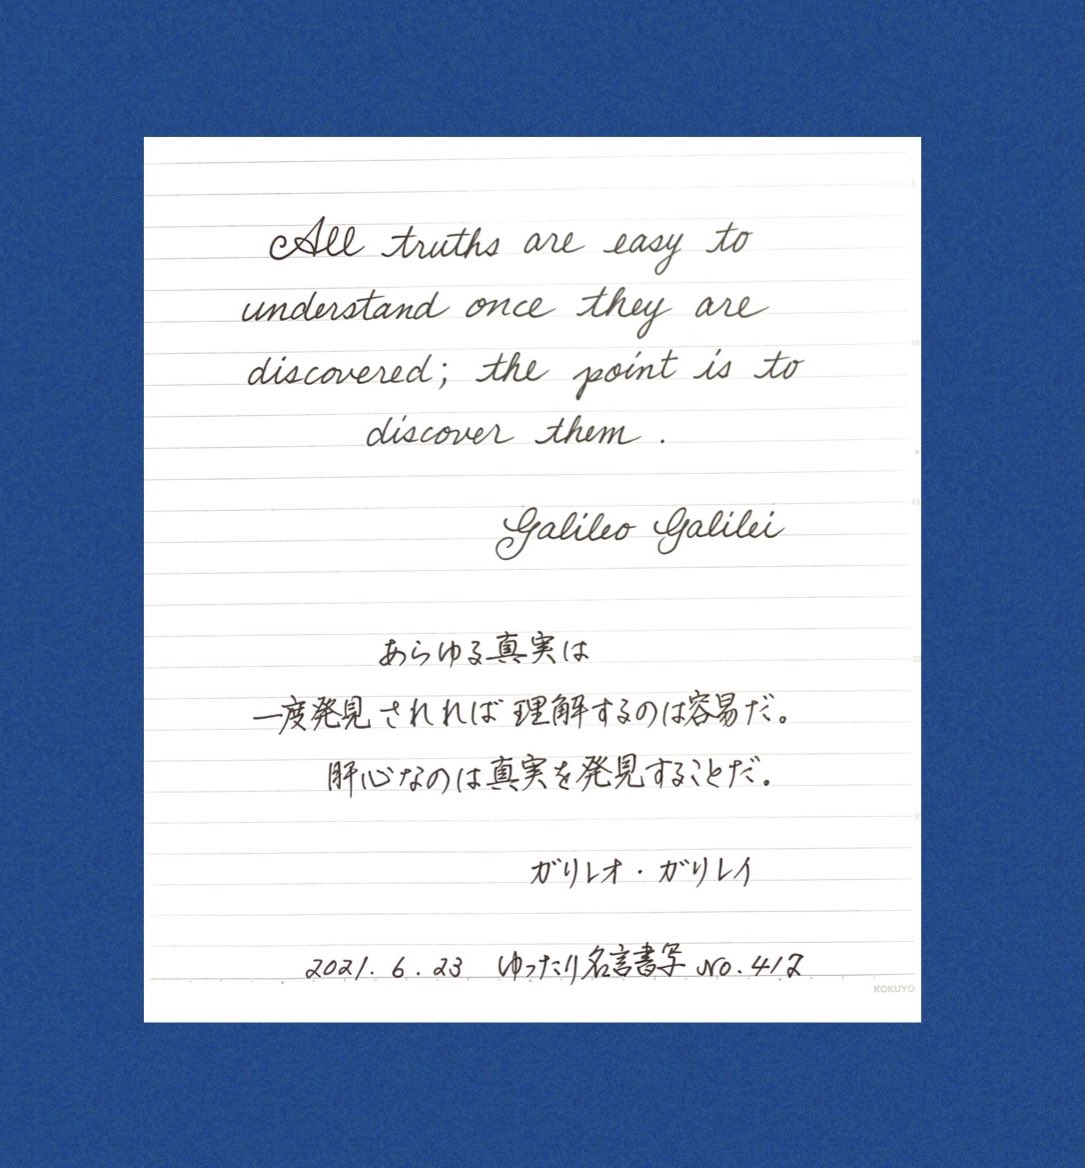 All truths are easy to
understand once they are
discovered; the point is to
discover them.
Galileo Galilei
あらゆる真実は
一度発見されれば理解するのは容易だ。
肝心なのは真実を発見することだ。
ガリレオ・ガリレイ
2021.6.23 ゆったり名言書写 No.412
KOKUYO